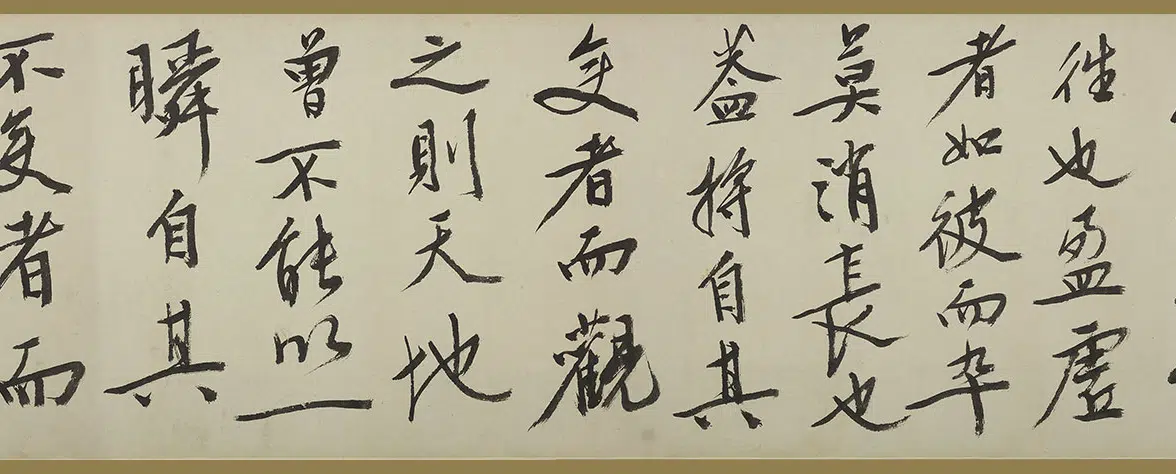 往也盈虛
者如彼而卒
莫消長也
蓋將自其
變者而觀
之則天地
曾不能以一
瞬自其
不變者而